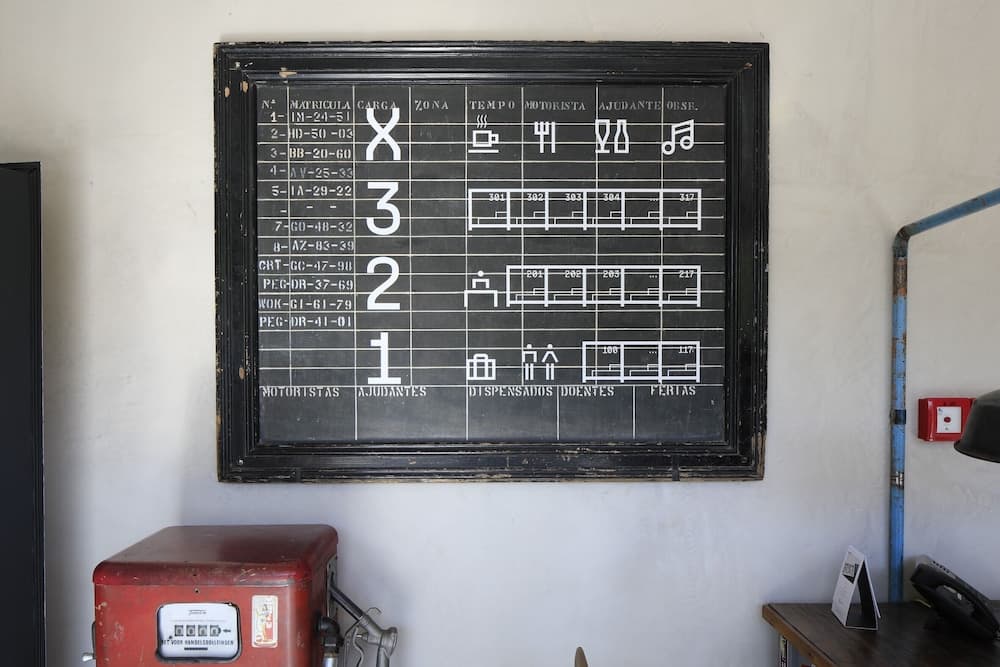 N.º MATRICULA CARGA ZONA TEMPO MOTORISTA AJUDANTE OBSR.
1- IM-24-51
2- HD-50-03
X
3- BB-20-60
4- AV-25-33
5- IA-29-22
3
301 302 303 304 ... 317
- - -
7- GO-48-32
8- AZ-83-39
CRT-GC-47-98
2
201 202 203 ... 217
PEG-DR-37-69
WOK-GI-61-79
PEG-DR-41-01
1
100 ... 117
MOTORISTAS AJUDANTES DISPENSADOS DOENTES FERIAS
NIET VOOR HANDELSDOELEINDEN